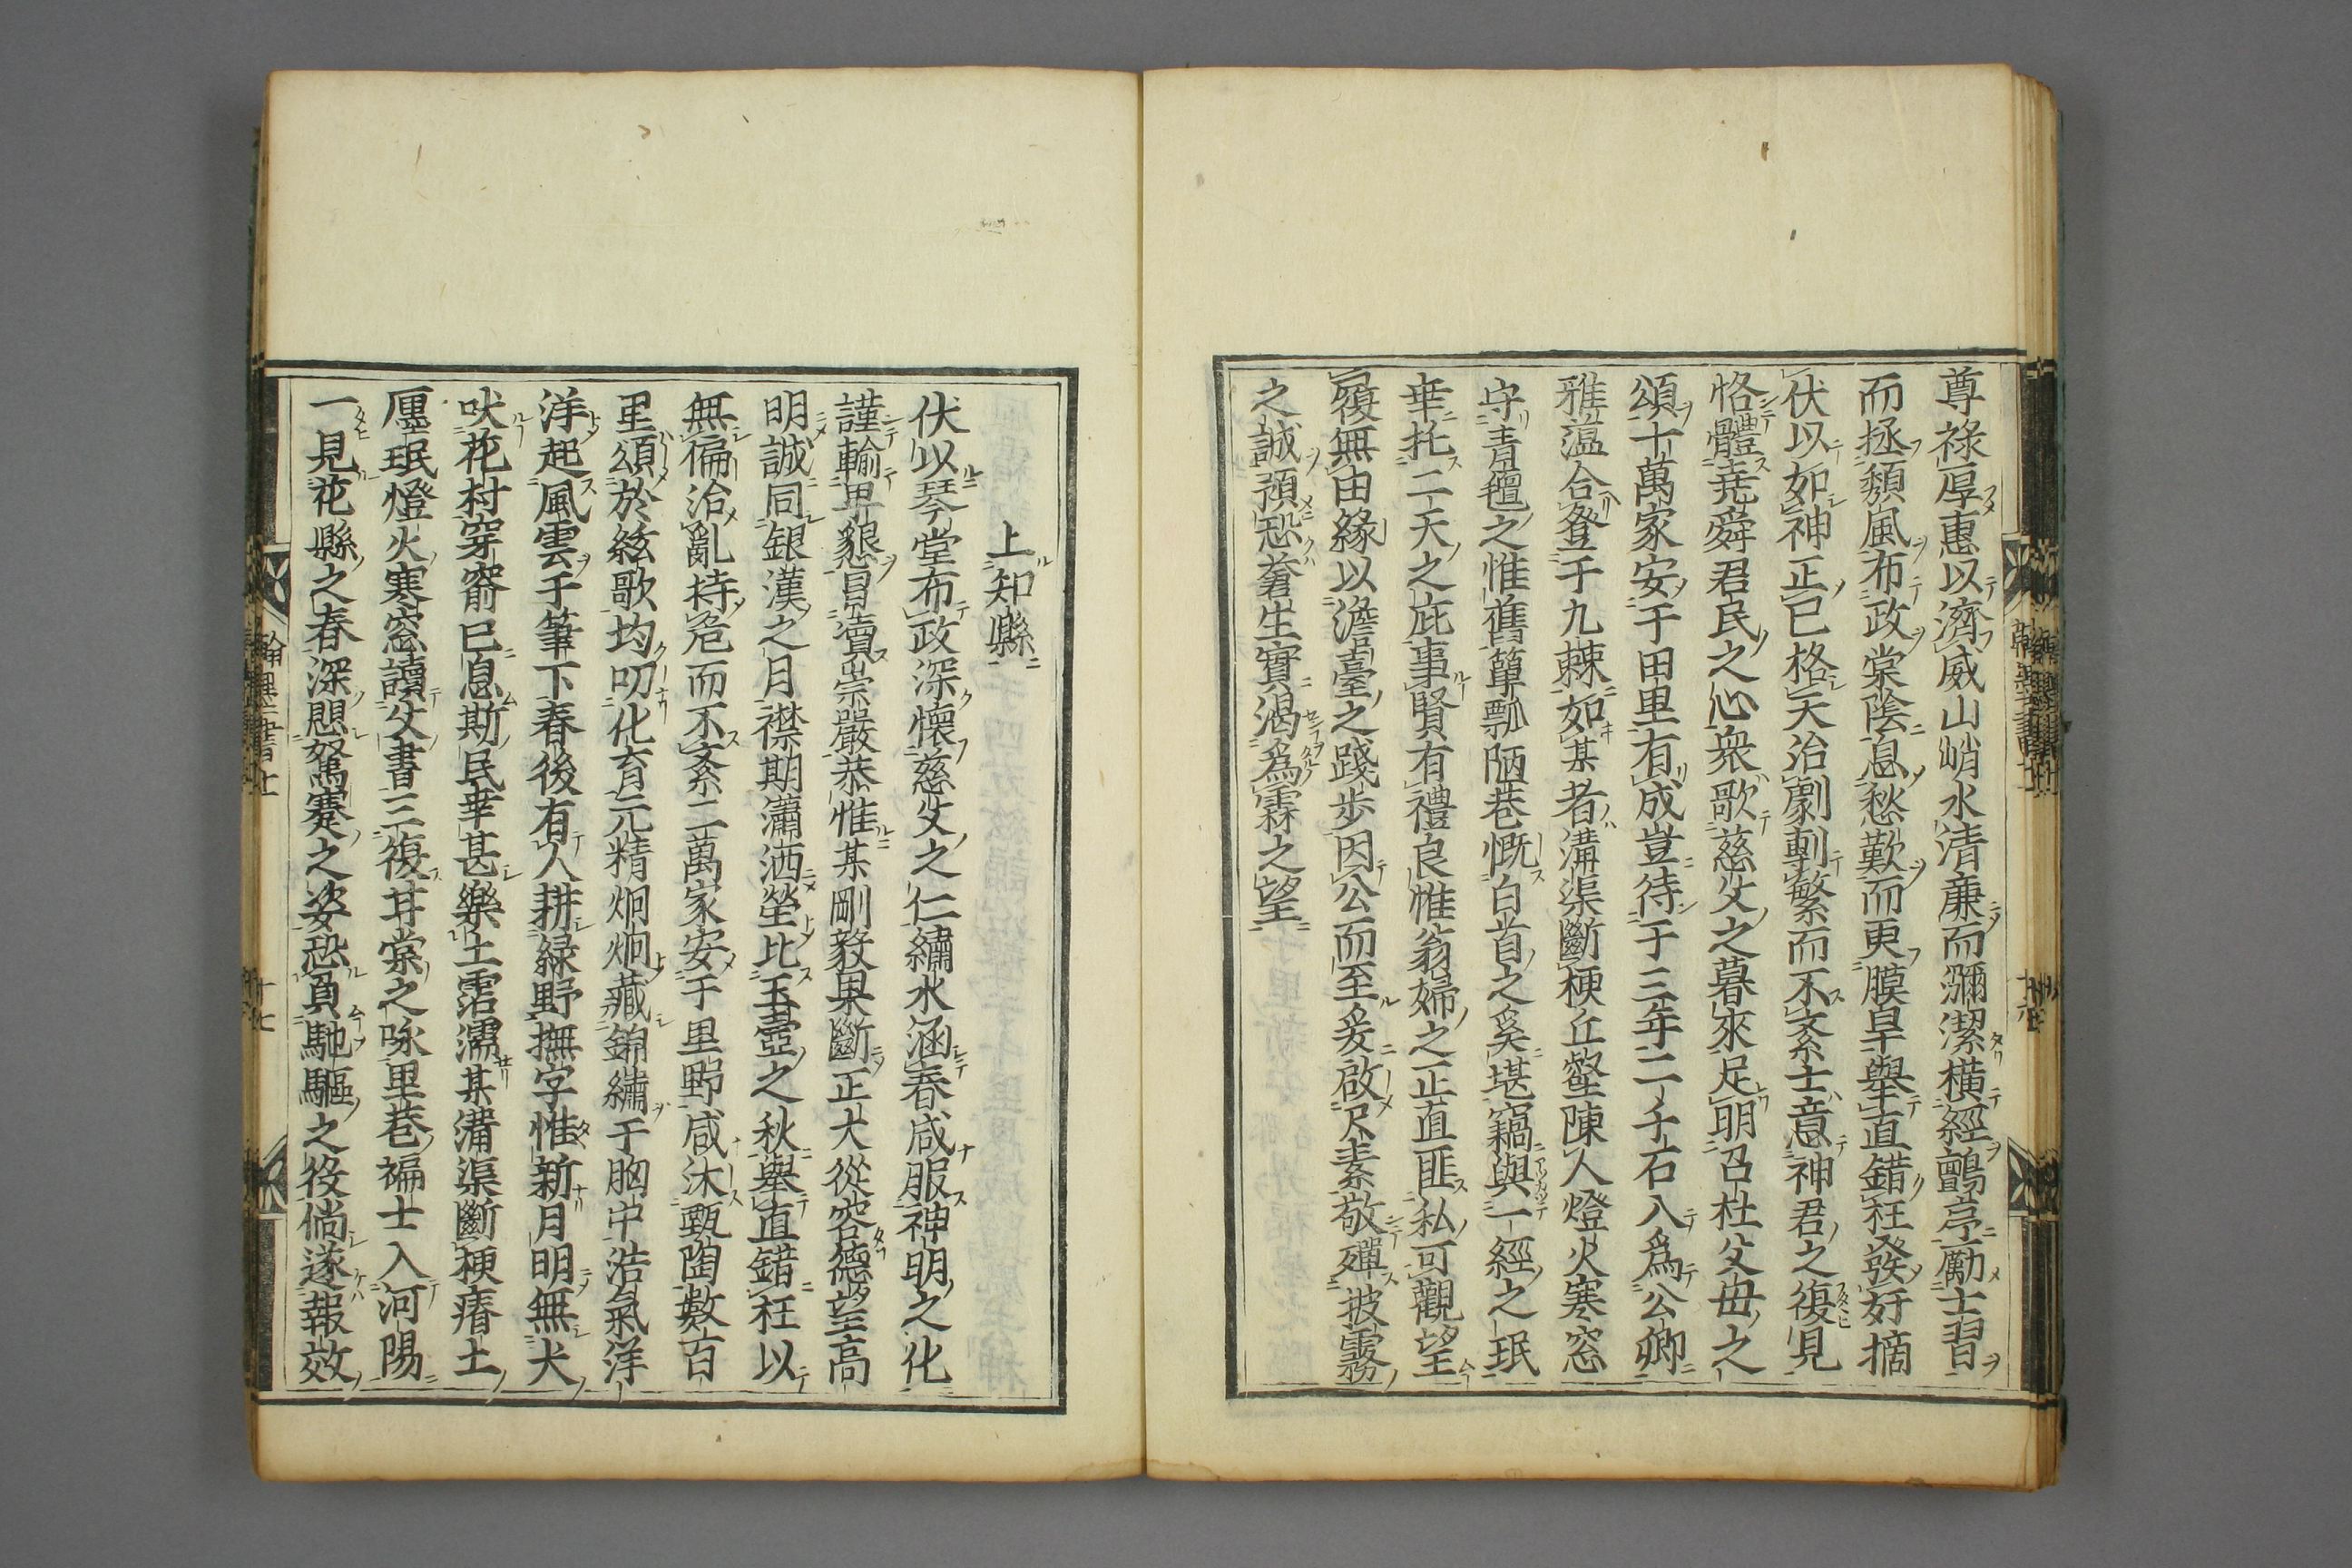 尊祿厚惠以濟威山峭水清廉而瀰潔橫經鸇亭勵士習
而拯頹風布政棠陰息愁歎而更膜皐舉直錯枉發奸摘
伏以如神正己格天治劇剸繁而不紊士意神君之復見
恪體堯舜君民之心衆歌慈父之暮來足明召杜父母之
頌十萬家安于田里有成豈待于三年二千石入爲公卿
雅蘊合登于九棘如某者溝渠斷梗丘壑陳人燈火寒窓
守青氊之惟舊簞瓢陋巷慨白首之奚堪竊與一經之珉
幸托二天之庇事賢有禮良惟翁婦之正直匪私可觀望
履無由緣以澹臺之踐步因公而至爰啟尺素敬殫披霧
之誠預恐蒼生實渴爲霖之望
上知縣
伏以琴堂布政深懷慈父之仁繡水涵春咸服神明之化
謹輸卑懇冒瀆崇嚴恭惟某剛毅果斷正大從容德望高
明誠同銀漢之月襟期瀟洒瑩比玉壺之秋舉直錯枉以
無偏治亂持危而不紊二萬家安于里野咸沐甄陶數百
里頌於絃歌均叨化育元精炯炯藏錦繡于胸中浩氣洋
洋起風雲于筆下春後有人耕緑野撫字惟新月明無犬
吠花村穿窬已息斯民幸甚樂土霑濡某溝渠斷梗瘠土
廛珉燈火寒窓讀父書三復甘棠之咏里巷褊士入河陽
一見花縣之春深愳駑蹇之姿恐負馳驅之役倘遂報效
翰墨書
十七